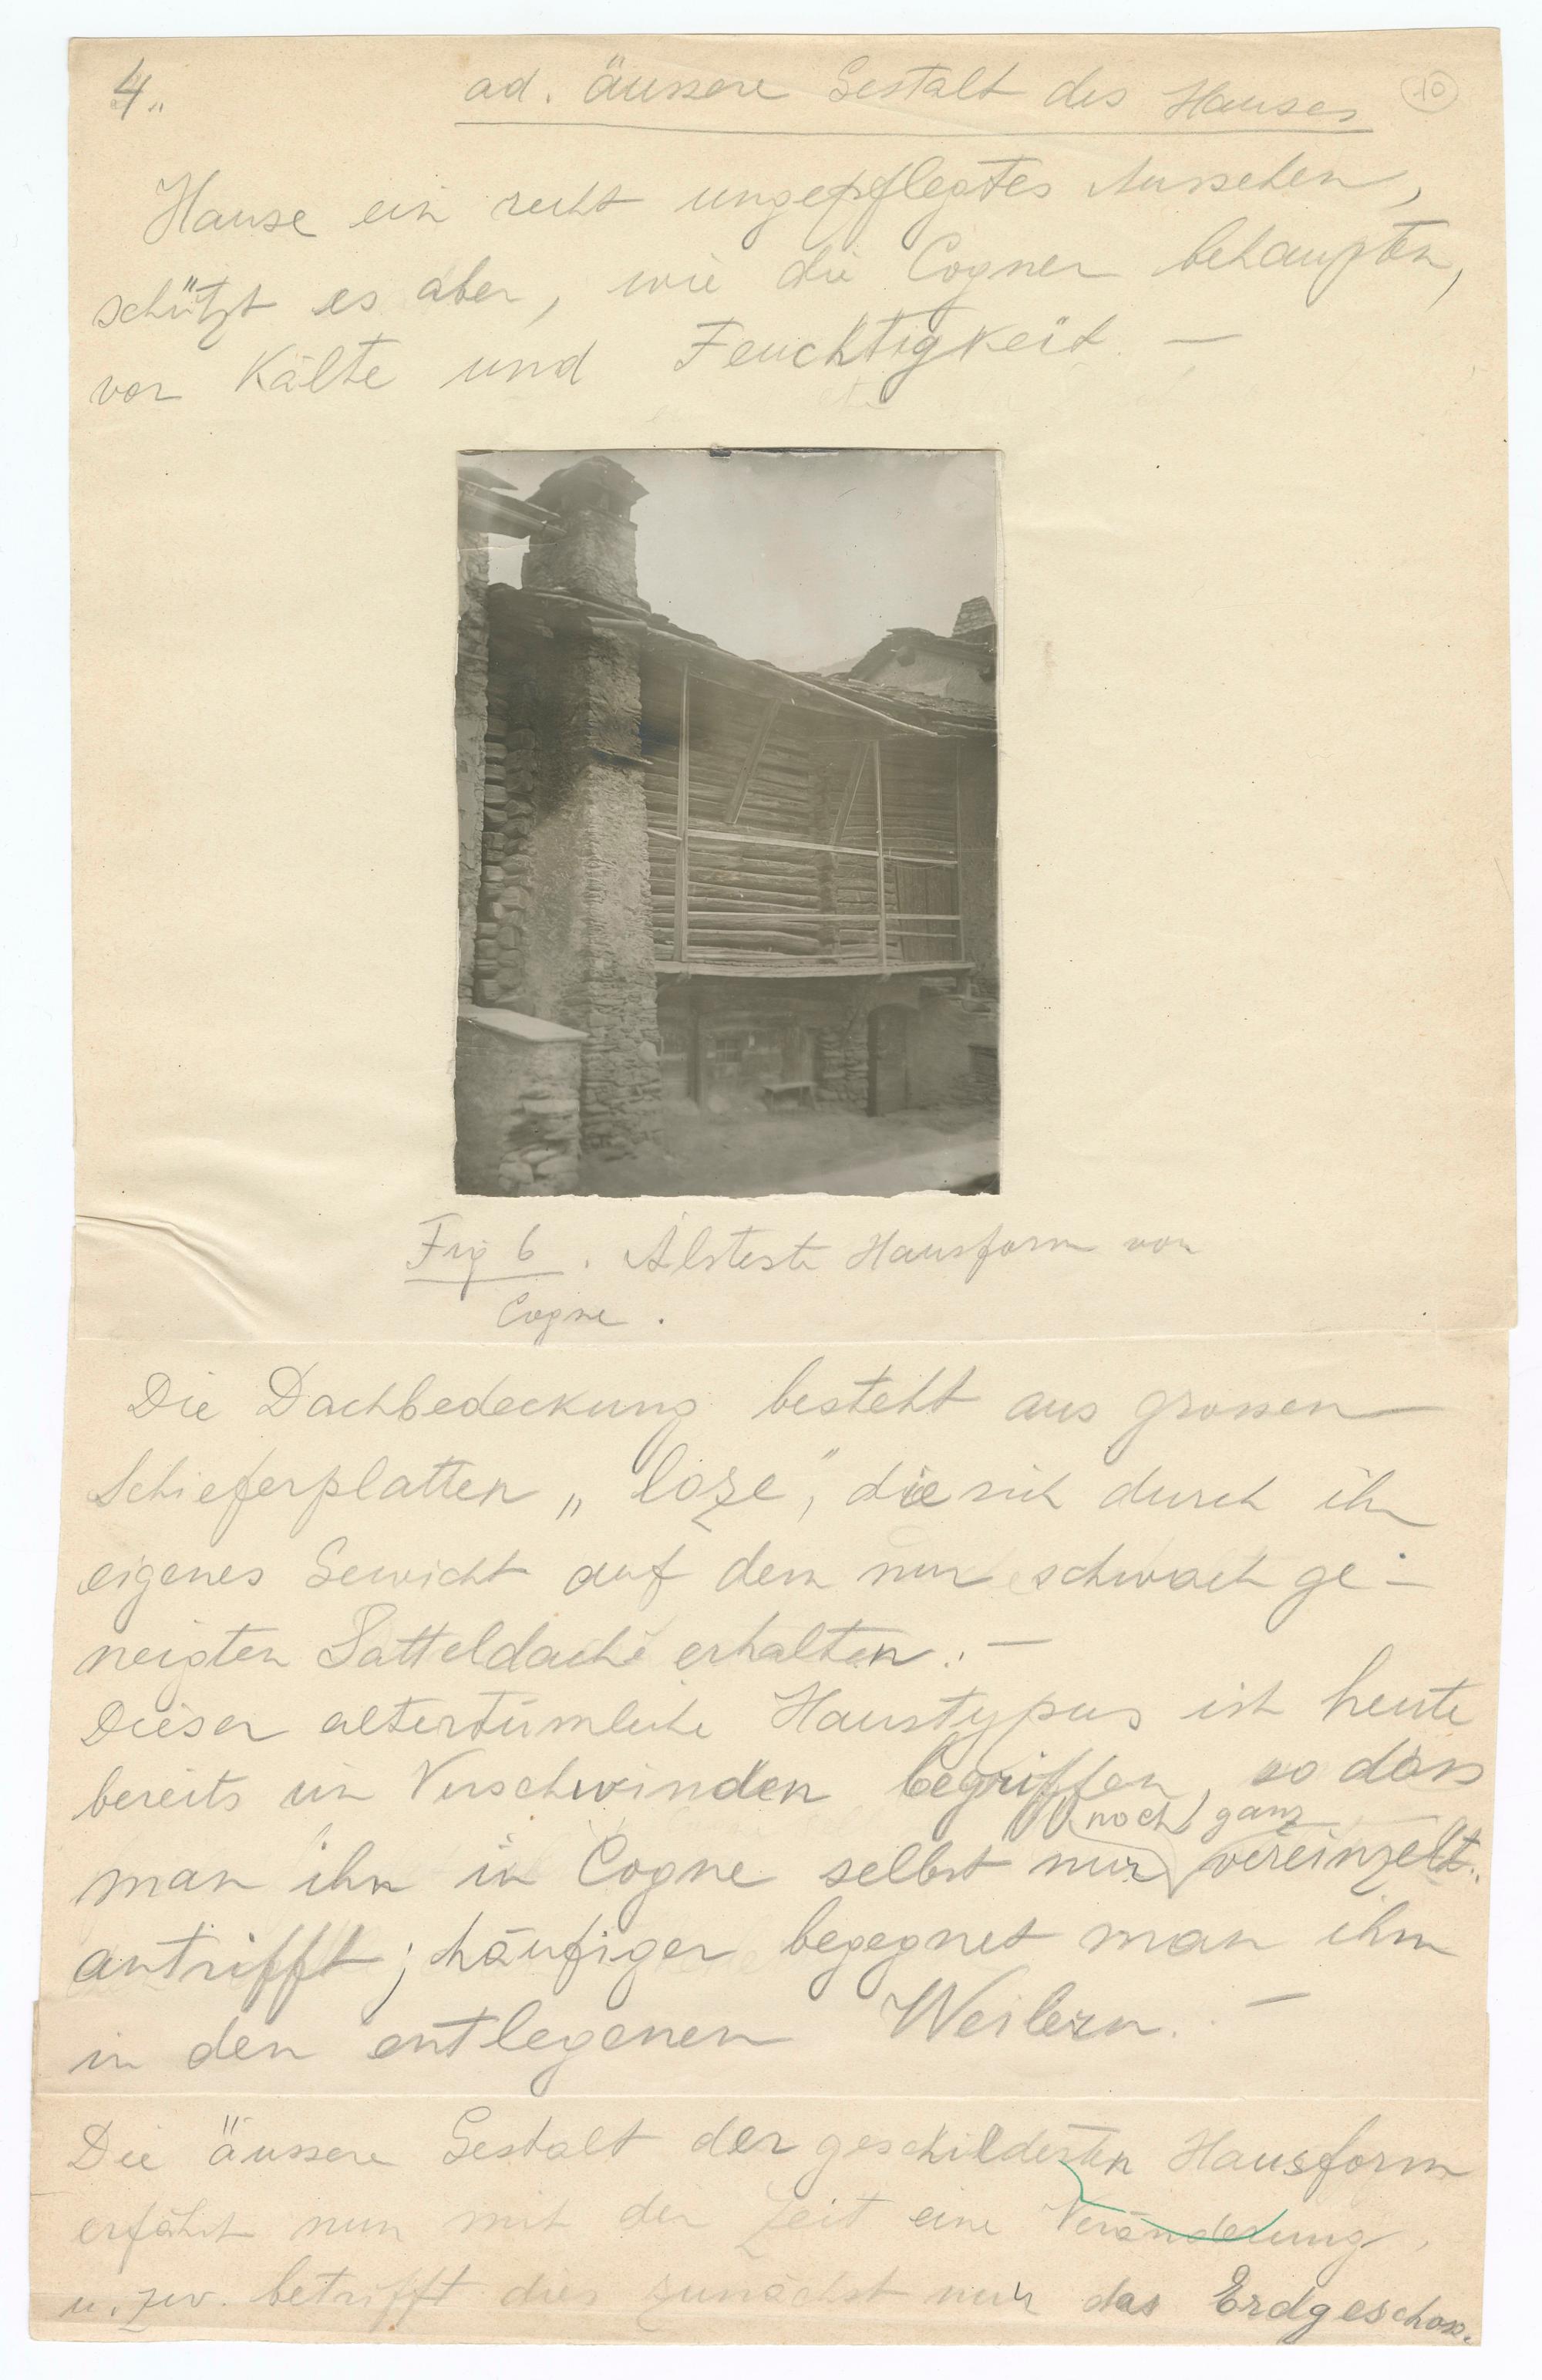 4.. ad. äussere Gestalt des Hauses 10
Hause ein recht ungepflegtes Aussehen,
schützt es aber, wie die Cogner behaupten,
vor Kälte und Feuchtigkeit. —
Fig 6. Älteste Hausform von
Cogne.
Die Dachbedeckung besteht aus grossen
Schieferplatten „loze", die sich durch ihr
eigenes Gewicht auf dem nur schwach ge-
neigten Satteldache erhalten. —
Dieser altertümliche Haustypus ist heute
bereits im Verschwinden begriffen, so dass
man ihn in Cogne selbst nur noch ganz vereinzelt
antrifft; häufiger begegnet man ihm
in den entlegenen Weilern. —
Die äussere Gestalt der geschilderten Hausform
erfährt nun mit der Zeit eine Veränderung,
u. zw. betrifft dies zunächst nur das Erdgeschoss.